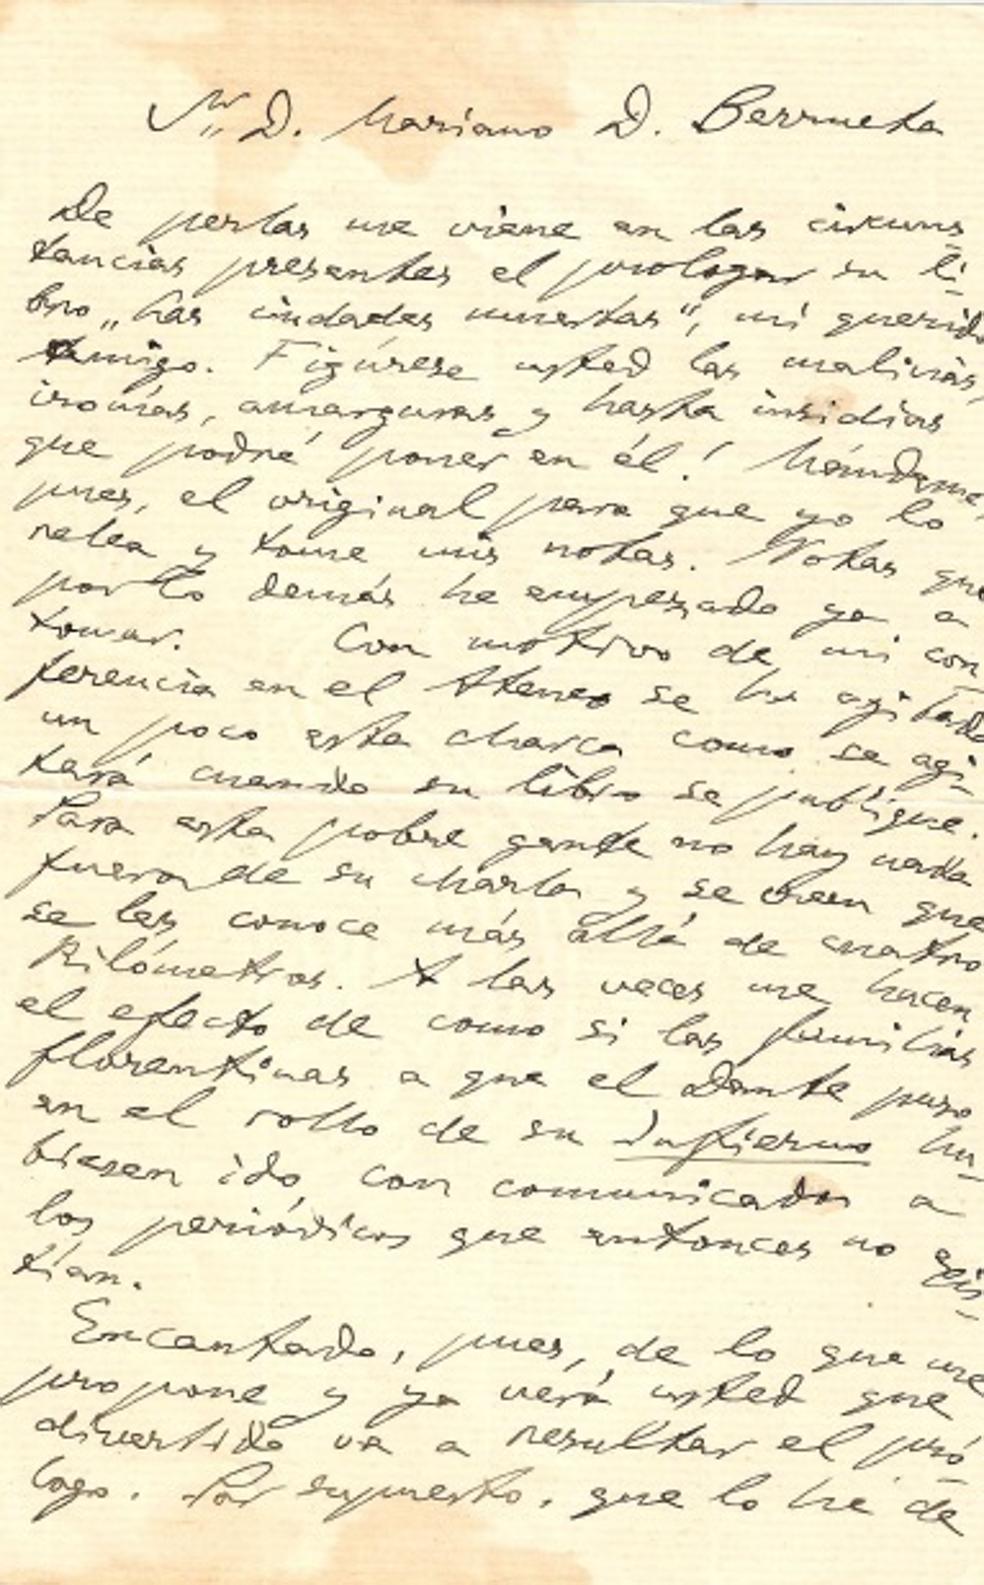 Sr D. Mariano D. Berrueta
De perlas me viene en las circuns
tancias presentes el prologar su li-
bro „Las ciudades muertas“, mi querido
amigo. Figúrese usted las malicias,
ironías, amarguras y hasta insidias
que podré poner en él! Mándeme,
pues, el original para que yo lo
relea y tome mis notas. Notas que
por lo demás he empezado ya a
tomar. Con motivo de mi con
ferencia en el Ateneo se ha agitado
un poco esta charca como se agi-
tará cuando su libro se publique.
Para esta pobre gente no hay nada
fuera de su charla y se creen que
se les conoce más allá de cuatro
kilómetros. A las veces me hacen
el efecto de como si las familias
florentinas a que el Dante puso
en el rollo de su Infierno hu-
biesen ido con comunicados a
los periódicos que entonces no exis-
tían.
Encantado, pues, de lo que me
propone y ya verá usted que
divertido va a resultar el pró
logo. Por supuesto, que lo he de